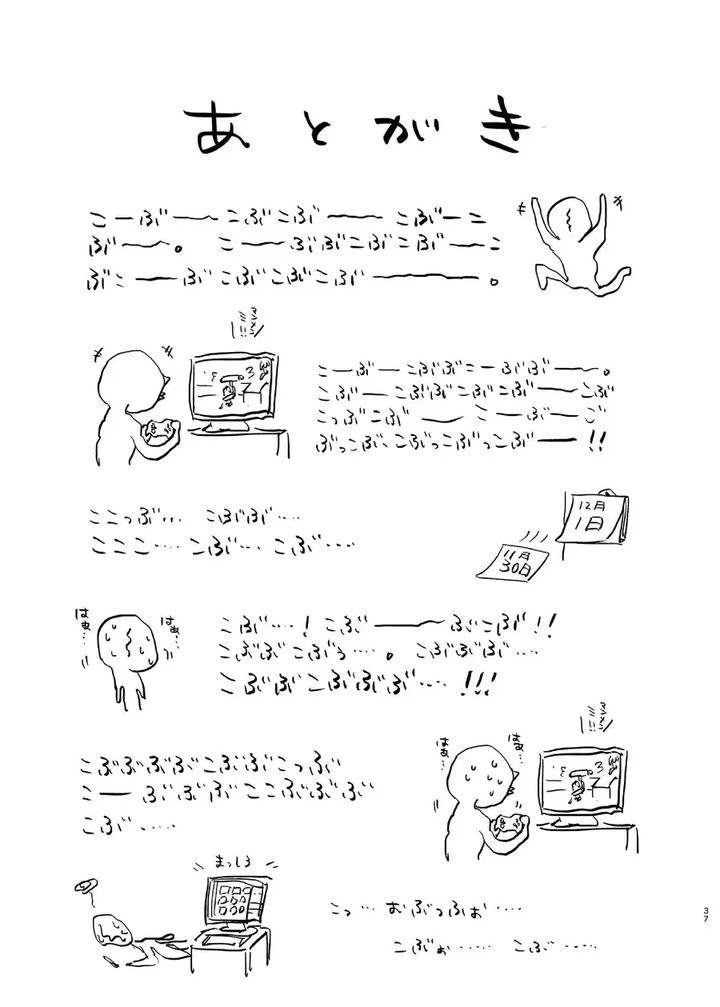 あとがき
こーぶ――こぶこぶ――こぶーこ
ぶ――。こ――ぶぶこぶこぶ――こ
ぶこ――ぶこぶこぶこぶ――――。
こーぶーこぶぶこーぶぶ――。
こぶーこぶぶこぶこぶ――こぶ
こっぶこぶ――こーぶーご
ぶっこぶ、こぶっこぶっこぶ――!!
ここっぶ… こぶぶ……
こここ……こんぶ…こぶ……
12月
1日
11月
30日
はぁ…
はぁ…
こぶ…! こぶ――――ぶこぶ!!
こぶぶこぶぅ…。こぶぶぶ…
こぶぶこぶぶぶ……!!!
はぁ…
はぁ…
こぶぶぶぶこぶぶこっぶ
こ――ぶぶぶここぶぶぶ
こぶ……
まっしろ
こっ… おぶっふぉ……
こぶぉ…… こぶ……
37